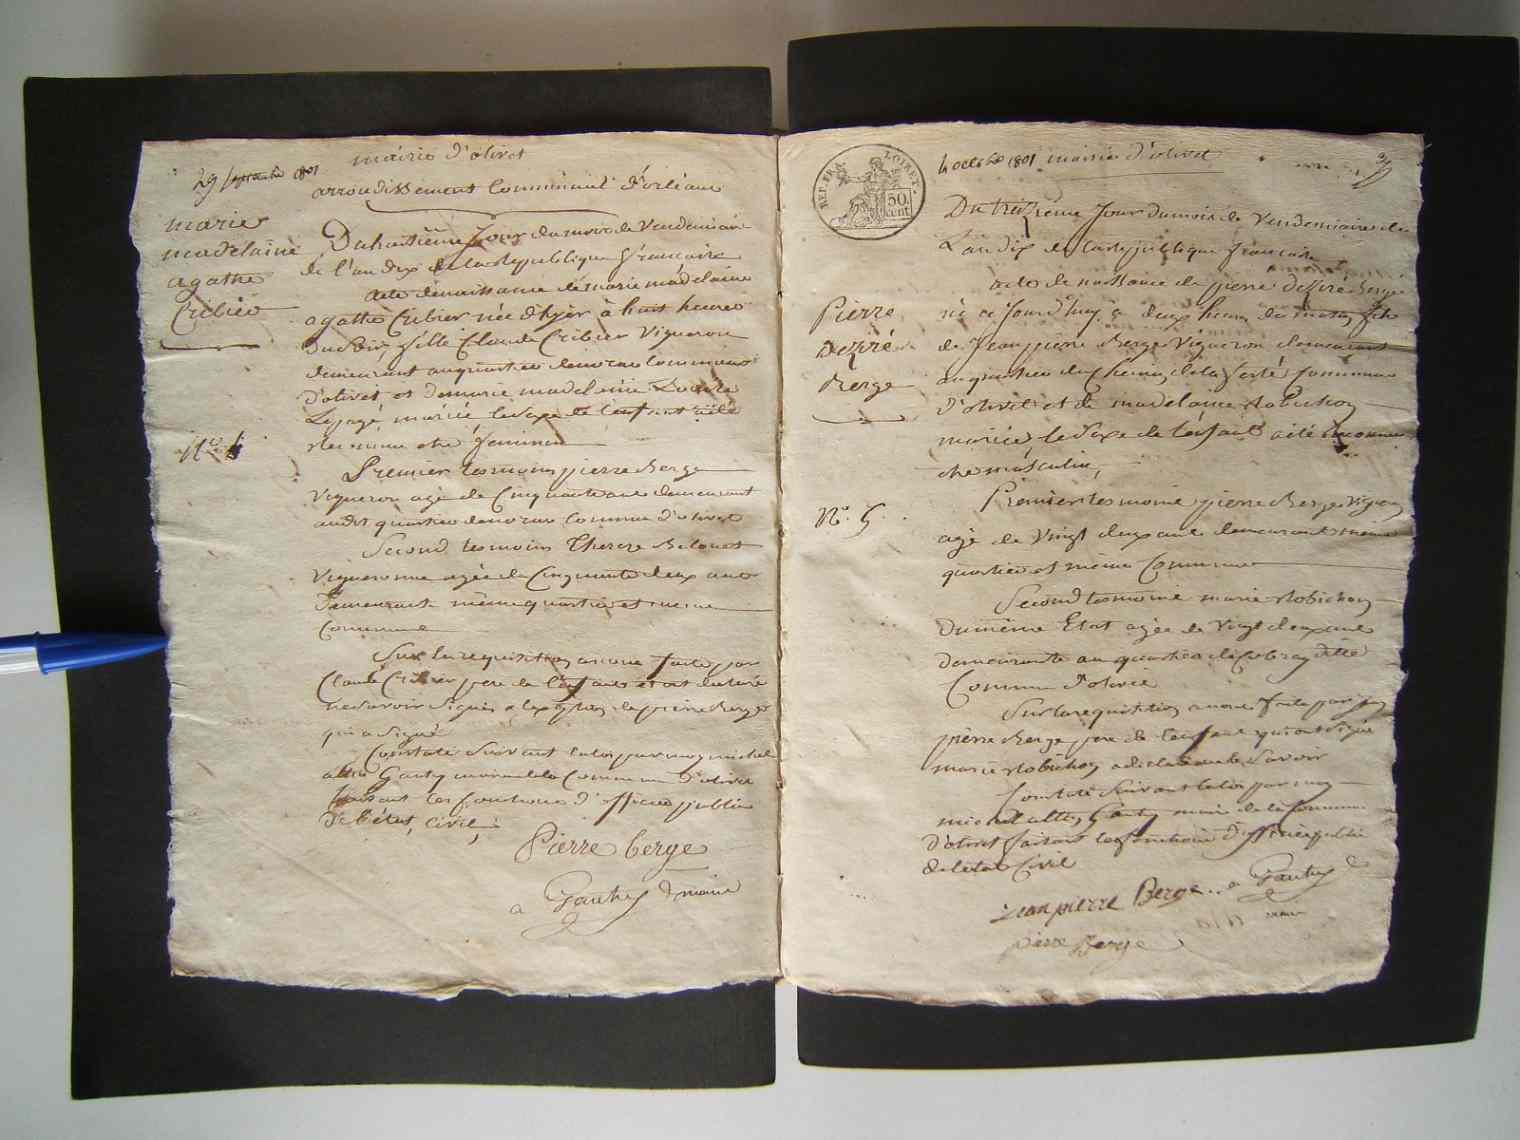 29 septembre 1801
mairie d'olivet
arrondissement Communal d'orléans
marie
madelaine
agathe
Cribier
Du huitième Jour du mois de Vendemiaire
de l'an dix de la Republique française
acte de naissance de marie madelaine
agathe Cribier née d'hyer à huit heures
du soir, fille Claude Cribier Vigneron
demeurant au quartier commune
d'olivet et de marie madelaine
Lepage, mariée le sexe de l'enfant a été
reconnu etre feminin
No. 4
Premier temoin pierre Berge
Vigneron agé de Cinquante ans demeurant
audit quartier commune d'olivet
Second temoin Therese
Vigneronne agée de Cinquante deux ans
demeurant même quartier et meme
Commune
Sur la requisition a nous faite par
Claude Cribier pere de l'enfant et ont declaré
ne savoir signer a l'exception de pierre Berge
qui a signé
Constaté suivant la loi par moy michel
Gauthy maire de la Commune d'olivet
faisant les fonctions d'officier public
de l'état civil,
Pierre berge
Gauthy maire
REP. FRA. LOIRET.
50 cent
4 octobre 1801 mairie d'olivet
Du treizième Jour du mois de Vendemiaire de
L'an dix de la republique française
acte de naissance de pierre deziré Berge
né ce jourd'huy à deux heures du matin fils
de Jean pierre Berge Vigneron demeurant
au quartier du chemin de la ferté commune
d'olivet et de madelaine Robichon
mariée le Sexe de l'enfant a été reconnu
etre masculin,
Pierre
Deziré
Berge
No. 5
Premier temoin pierre Berge Vigneron
agé de Vingt deux ans demeurant même
quartier et même Commune
Second temoin marie Robichon
du même Etat agée de Vingt deux ans
demeurante au quartier de
Commune d'olivet
Sur la requisition a nous faite par jean
pierre Berge pere de l'enfant qui ont signé
marie Robichon a declaré ne le savoir
Constaté suivant la loi par moy
michel Gauthy maire de la Commune
d'olivet faisant les fonctions d'officier public
de l'etat Civil
jean pierre Berge Gauthy
maire
pierre Berge